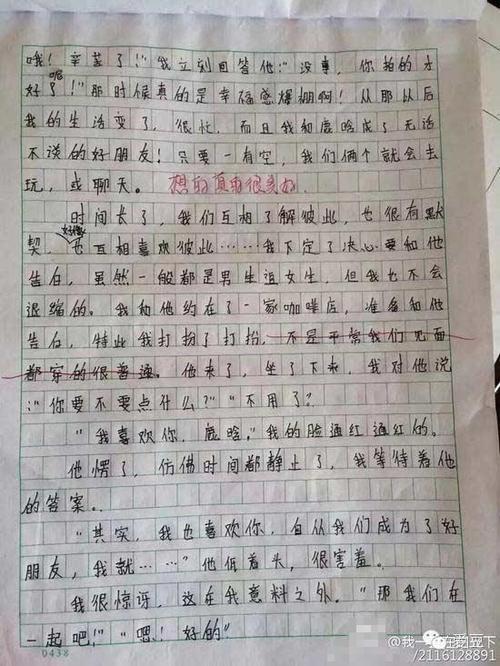 哦！辛苦了！"我立刻回答他："没事，你拍的才
呢
好了！"那时候真的是幸福感爆棚啊！从那以后
我的生活变了，很忙，而且我和鹿晗成了无话
不说的好朋友！只要一有空，我们俩个就会去
玩，或聊天。 想的真的很美好
时间长了，我们互相了解彼此，也很有默
好像
契，也互相喜欢彼此……我下定了决心要和他
告白，虽然一般都是男生追女生，但我也不会
退缩的。我和他约在了一家咖啡店，准备和他
告白，特此我打扮了打扮，不是平常我们见面
都穿的很普通。他来了，坐了下来，我对他说
："你要不要点什么？""不用了？
"我喜欢你，鹿晗。"我的脸通红通红的。
他愣了，仿佛时间都静止了，我等待着他
的答案。
"其实，我也喜欢你，自从我们成为了好
朋友，我就……"他低着头，很害羞。
我很惊讶，这在我意料之外。"那我们在
一起吧！""嗯！好的"
0438
@我一
/2116128891